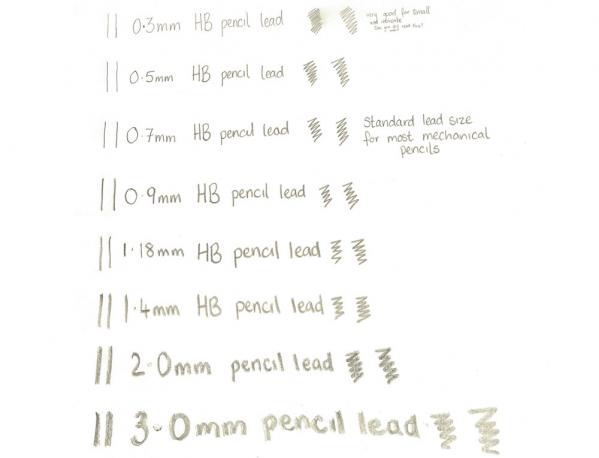 0.3mm HB pencil lead
very good for small
and intricate
Can you read this?
0.5mm HB pencil lead
0.7mm HB pencil lead
Standard lead size
for most mechanical
pencils
0.9mm HB pencil lead
1.18mm HB pencil lead
1.4mm HB pencil lead
2.0mm pencil lead
3.0mm pencil lead